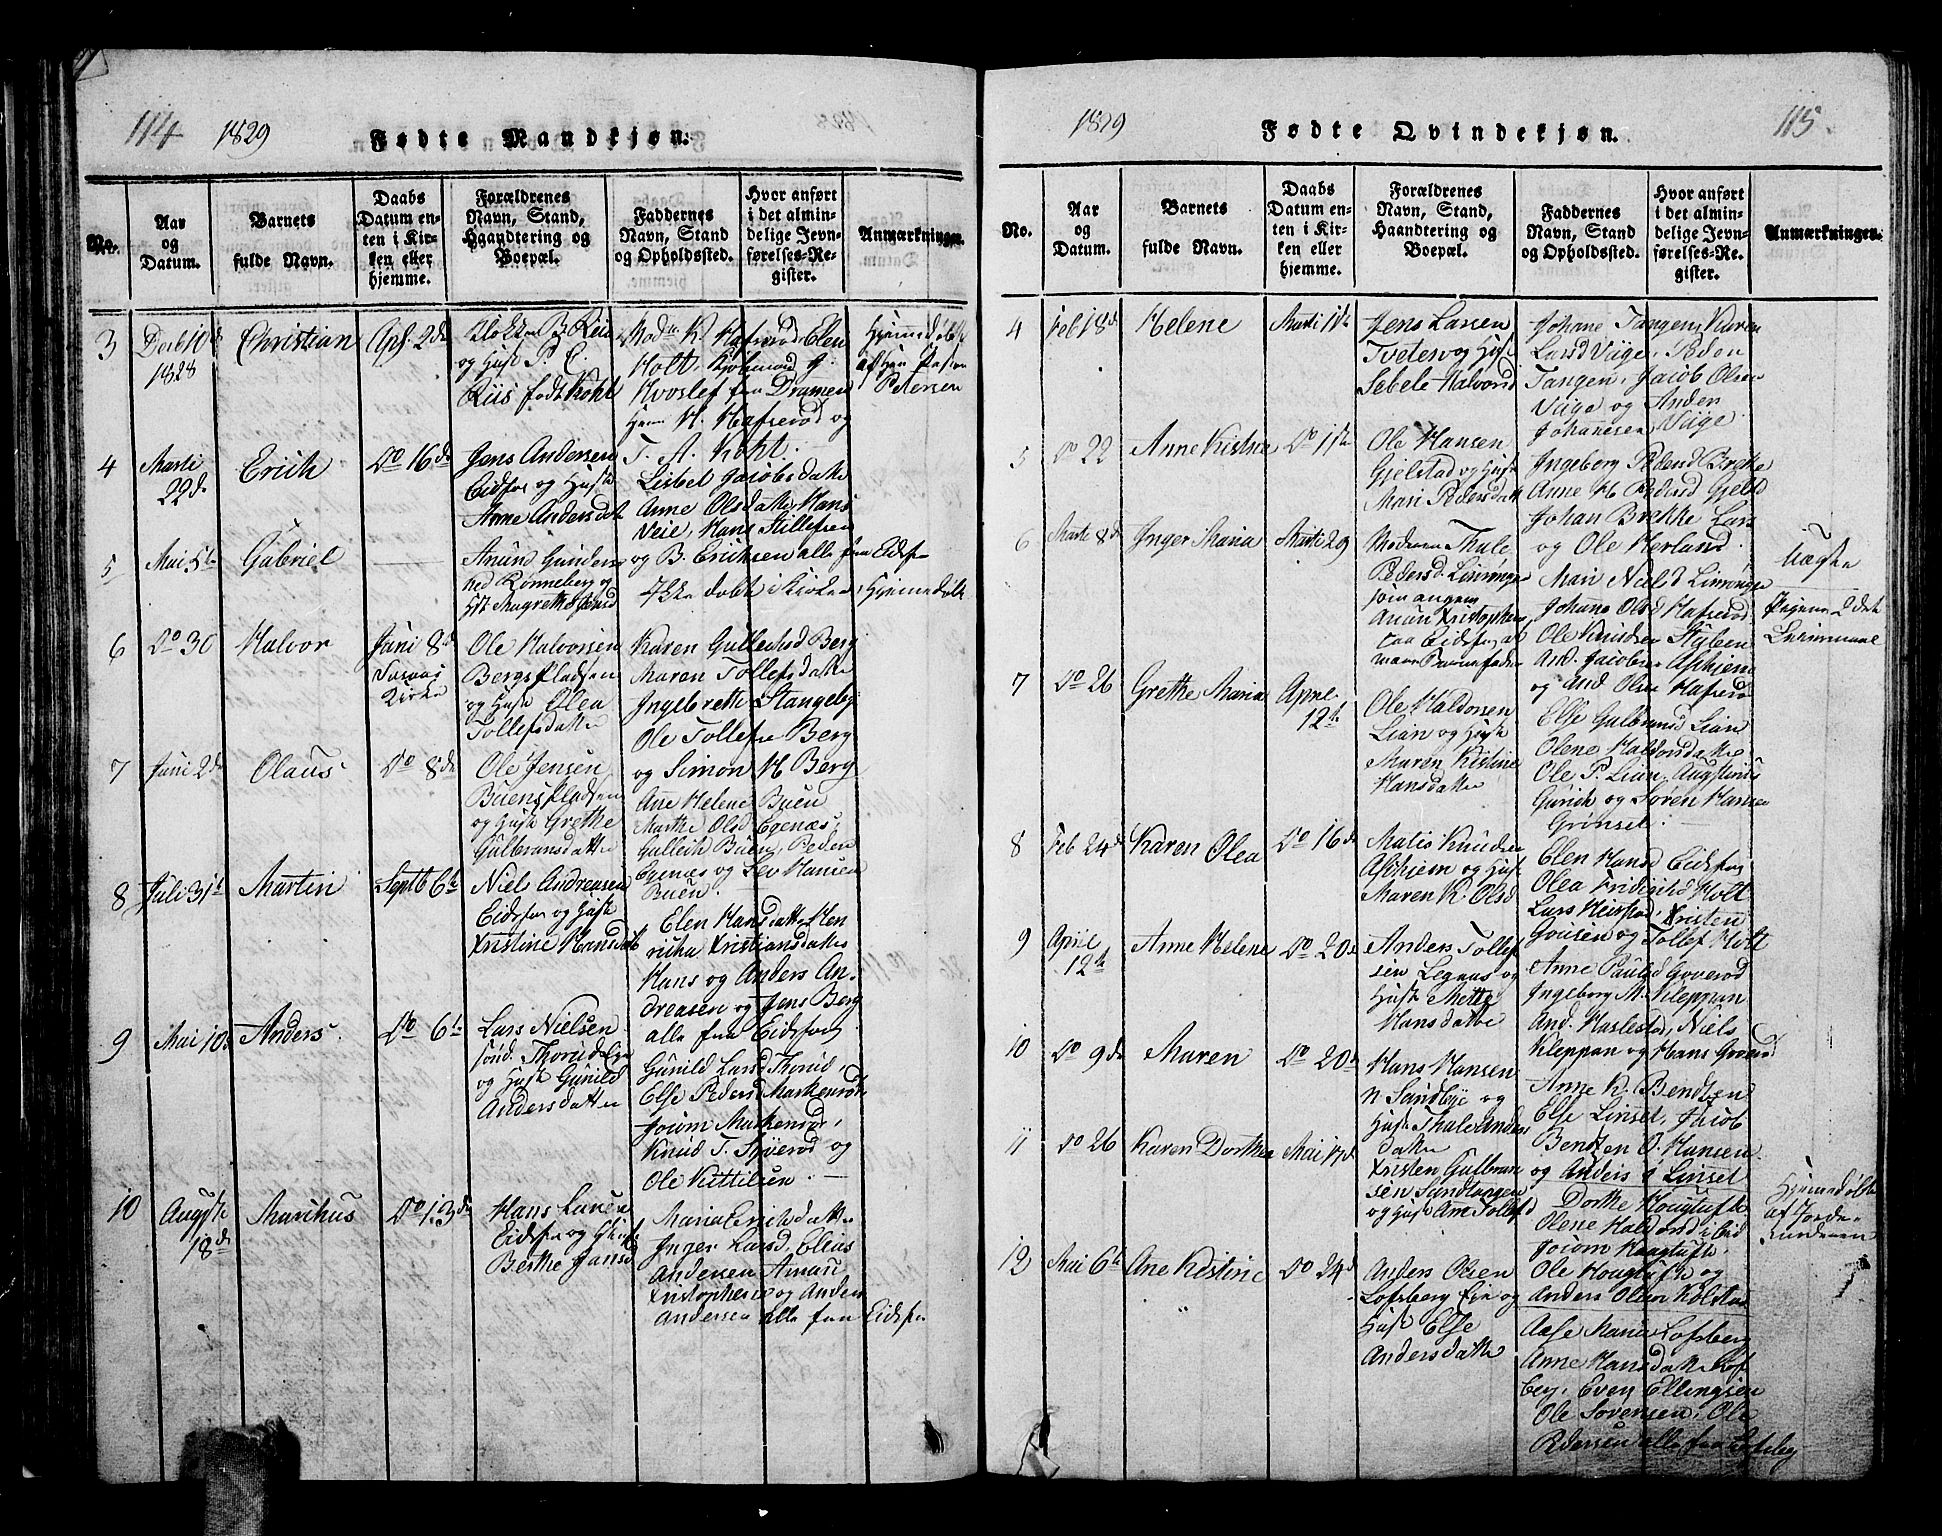 114 1829 Fødte Mandkjøn.
No.
Aar
og
Datum.
Barnets
fulde Navn.
Daabs
Datum en-
ten i Kir-
ken eller
hjemme.
Forældrenes
Navn, Stand,
Haandtering og
Boepæl.
Faddernes
Navn, Stand
og Opholdssted.
Hvor anført
i det almin-
delige Jevn-
førelses-Re-
gister.
Anmærkninger.
3
1828
Christian
Apr. 2de
og Hust P. C.
Riis født Koht
Holt
Hvoslef fra Dramen
H. Hafserød og
T. A. Koht
Hjemedøbt
Petersen
4
Marti
29de
Erich
Do 16de
Jens Andersen
Eidsfos og Hust
Anne Andersdatt
Lisbet Jacobsdatte
Anne Olsdatte, Hans
Veie, Hans Stillefsen
og B. Erichsen alle fra Eidsf
5
Mai 5te
Gabriel
Anund Gunders
ved Rønneberg og
Hst Magrethe Jensd
Ikke døbt i Kirken, Hjemmedøbt
6
Do 30
Halvor
Juni 8de
Kirke
Ole Halvorsen
Bergspladsen
og Hust Olea
Tollefsdatte
Karen Gullechsd Berg
Maren Tollefsdatte
Ingebrette Stangeby
Ole Tollefsen Berg
og Simon H Berg
7
Juni 2de
Olaus
Do 8de
Ole Jensen
Buenspladsen
og Hust Grethe
Gulbransdatte
Ane Helene Buen
Marthe Olsd Egenæs
Gulleih Buen, Peder
Egenæs og Lev Hansen
Buen
8
Juli 31te
Martin
Septb 6te
Niels Andreasen
Eidsfos og Hust
Kristine Hansdatt
Elen Hansdatte, Hen
richa Kristiansdatte
Hans og Anders An-
dreasen og Jens Berg
alle fra Eidsfos
9
Mai 10de
Anders
Do 6te
Lars Nielsen
Thorud Eje
og Hust Gunild
Andersdatte
Gunild Larsd Thorud,
Else Pedersd Markerød
Joiom Markerød,
Knud T. Syverød og
Ole Kittilsen
10
Augste
18de
Marihus
Do 13de
Hans Larsen
Eidsfos og Hust
Berthe Jansd
Maria Erichsdatte
Inger Larsd, Elias
Andersen Amun
Kristophersen og Anders
Andersen alle fra Eidsfos
1829 Fødte Qvindekjøn. 115
No.
Aar
og
Datum.
Barnets
fulde Navn.
Daabs
Datum en-
ten i Kir-
ken eller
hjemme.
Forældrenes
Navn, Stand,
Haandtering og
Boepæl.
Faddernes
Navn, Stand
og Opholdssted.
Hvor anført
i det almin-
delige Jevn-
førelses-Re-
gister.
Anmærkninger.
4
Feb 18de
Helene
Marti 1te
Jens Larsen
Tveten og Hust
Sebele Halvorsd
Johane Tangen, Karen
Larsd Viige, Peder
Tangen, Jacob Olsen
Viige og Anders
Johannesen Viige
5
Do 22
Anne Kistine
Do 1te
Ole Hansen
Gjelstad og Hust
Mari Pedersdatt
Ingeborg Pedersd Brekke
Anne H Pedersd Gjelst
Johan Brekke Lars
og Ole Herland
6
Marti 8de
Inger Maria
Marti 29
Moderen Thale
Pedersd Linnerønge
som angav
Anun Kristophersen
fra Eidsfos, at
være Barnefader
Mari Nielsd Linrønge
Johane Olsd Hafserød
Ole Knudsen Styben
And. Jacobsen Askjem
og And Olsen Hafserød
Uægte
7
Do 26
Grethe Maria
Aprie
12te
Ole Haldorsen
Lian og Hust
Maren Kistine
Hansdatte
Else Gulbransd Lian
Olene Haldorsdatte
Ole P. Lian, Augstinus
Gurich og Søren Hansen
Grinset
8
Feb 24de
Karen Olea
Do 16de
Matis Knudsen
Askjem og Hust
Maren K Olsd
Elen Hansd Eidsfos
Olea Fridrichsd Holt
Lars Heirstad, Kristen
Gousen og Tollef Holt
9
Aprie
12te
Anne Helene
Do 20de
Anders Tollef
sen Legaas og
Hust Mette
Hansdatte
Anne Paulsd Goverød
Ingeborg M. Kleppan
And. Haslestad, Niels
Kleppan og Hans Goverød
10
Do 9de
Maren
Do 20de
Hans Hansen
N Sandbye og
Hust Thale Anders
datte
Anne K. Bendtsen
Else Linset, Jacob
Bendtsen O. Hansen
og Anders Linset
11
Do 26
Karen Dorthea
Mai 17de
Kristen Gulbran
sen Sandtangen
og Hust Ane Tollefsd
Dorthe Hougtufte
Olene Haldorsd ibid
Joiom Haugtufte,
Ole Hougtufte og
Anders Olsen Kolstad
Hjemedøbt
af Jorde-
12
Mai 6te
Ane Kistine
Do 24de
Anders Olsen
Lofsberg Eje og
Hust Else
Andersdatte
Aase Maria Lofsberg
Anne Hansdatte Lofs
berg, Even Ellingsen
Ole Sørensen, Ole
Pedersen alle fra Lofsbeg